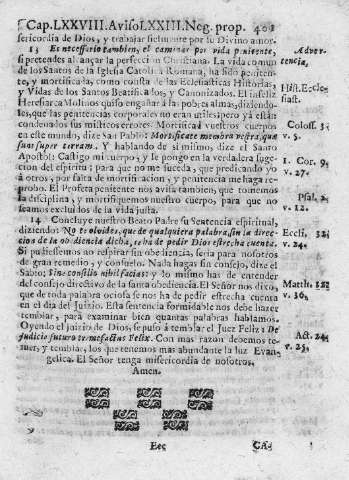 Cap. LXXVIII. Aviso LXXIII. Neg. prop. 401
sericordia de Dios, y trabajar fielmente por su Divino amor.
13 Es necessario tambien, el caminar por vida penitente,
si pretendes alcançar la perfeccion Christiana. La vida comun
de los Santos de la Iglesia Catolica Romana, ha sido peniten-
te, y mortificada, como consta de las Eclesiasticas Historias,
y Vidas de los Santos Beatificados, y Canonizados. El infeliz
Heresiarca Molinos quiso engañar à las pobres almas, diziendo-
les, que las penitencias corporales no eran utiles; pero yà estàn
condenados sus misticos errores. Mortificad vuestros cuerpos
en este mundo, dize San Pablo: Mortificate membra vestra, quæ
sunt super terram. Y hablando de sì mismo, dize el Santo
Apostol: Castigo mi cuerpo, y le pongo en la verdadera suge-
cion del espiritu; para que no me suceda, que predicando yo
à otros, por falta de mortificacion, y penitencia me haga re-
probo. El Profeta penitente nos avisa tambien, que tomemos
la disciplina, y mortifiquemos nuestro cuerpo, para que no
seamos excluidos de la vida justa.
14 Concluye nuestro Beato Padre su Sentencia espiritual,
diziendo: No te olvides, que de qualquiera palabra sin la direc-
cion de la obediencia dicha, se ha de pedir Dios estrecha cuenta.
Si pudiessemos no respirar sin obediencia, seria para nosotros
de gran remedio, y consuelo. Nada hagas sin consejo, dize el
Sabio; Sine consilio nihil facias: y lo mismo has de entender
del consejo directivo de la santa obediencia. El Señor nos dixo,
que de toda palabra ociosa se nos ha de pedir estrecha cuenta
en el dia del Juizio. Esta sentencia formidable nos debe hazer
temblar, para examinar bien quantas palabras hablamos.
Oyendo el juizio de Dios, se puso à temblar el Juez Felix: De
judicio futuro tremefactus Felix. Con mas razon debemos te-
mer, y temblar, los que tenemos mas abundante la luz Evan-
gelica. El Señor tenga misericordia de nosotros,
Amen.
Adver-
tencia,
Hist. Ecle-
siast.
Coloss. 3.
v. 5.
1. Cor. 9.
v. 27.
Psal. 2.
v. 12.
Eccli. 32.
v. 24.
Matth. 12.
v. 36.
Act. 24.
v. 25.
Eee CA-